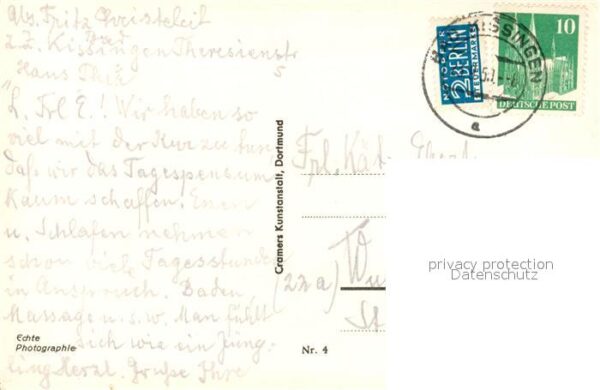 Abs. Fritz
z. Z. Kissingen Theresienstr
5
Haus
L. Frl E.! Wir haben so
viel mit der Kur zu tun
daß wir das Tagespensum
kaum schaffen. Essen
u. Schlafen nehmen
schon viele Tagesstunden
in Anspruch. Baden,
Massagen u.s.w. Man fühlt
sich wie ein Jüng-
ling Herzl. Grüße Ihre
Echte
Photographie
Cramers Kunstanstalt, Dortmund
Nr. 4
NOTOPFER
2 BERLIN
STEUERMARKE
10
DEUTSCHE POST
BAD KISSINGEN
a
Frl.
(22a)
privacy protection
Datenschutz